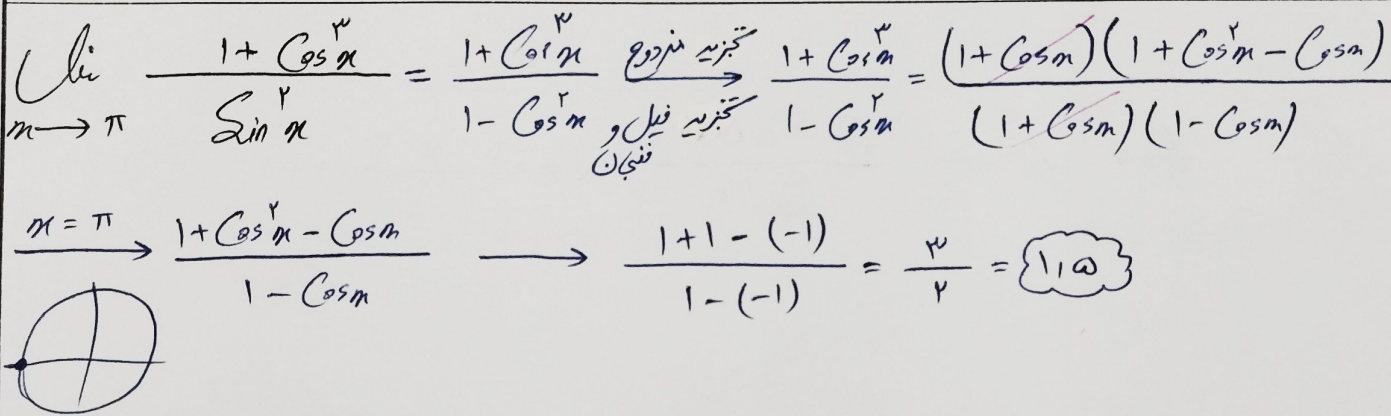 lim x→π (1 + Cos^۳x)/(Sin^۲x) = (1 + Cos^۳x)/(1 - Cos^۲x) تجزیه مزدوج → تجزیه فیل و فنجان (1 + Cos^۳x)/(1 - Cos^۲x) = ((1 + Cosx)(1 + Cos^۲x - Cosx))/((1 + Cosx)(1 - Cosx))
x = π → (1 + Cos^۲x - Cosx)/(1 - Cosx) → (1 + 1 - (-1))/(1 - (-1)) = ۳/۲ = ۱,۵